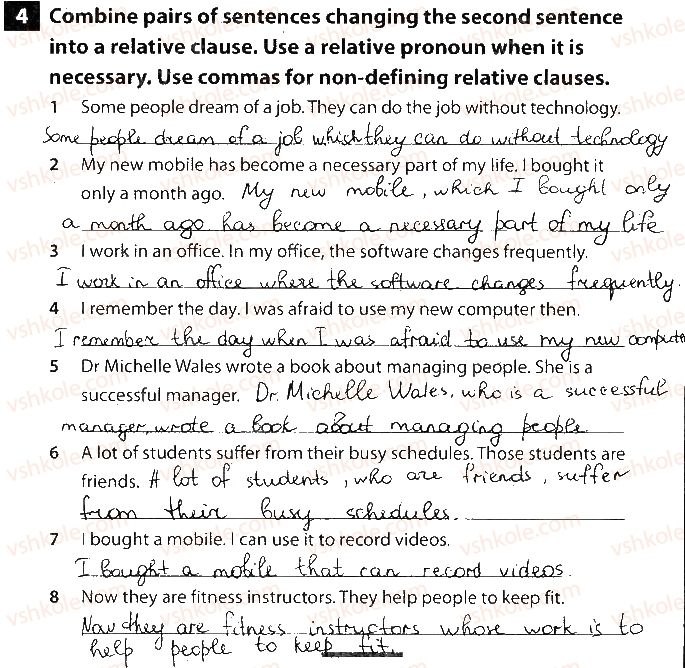 4 Combine pairs of sentences changing the second sentence
into a relative clause. Use a relative pronoun when it is
necessary. Use commas for non-defining relative clauses.
1 Some people dream of a job. They can do the job without technology.
Some people dream of a job which they can do without technology
2 My new mobile has become a necessary part of my life. I bought it
only a month ago. My new mobile, which I bought only
a month ago has become a necessary part of my life
3 I work in an office. In my office, the software changes frequently.
I work in an office where the software changes frequently.
4 I remember the day. I was afraid to use my new computer then.
I remember the day when I was afraid to use my new computer
5 Dr Michelle Wales wrote a book about managing people. She is a
successful manager. Dr. Michelle Wales, who is a successful
manager, wrote a book about managing people.
6 A lot of students suffer from their busy schedules. Those students are
friends. A lot of students, who are friends, suffer
from their busy schedules.
7 I bought a mobile. I can use it to record videos.
I bought a mobile that can record videos.
8 Now they are fitness instructors. They help people to keep fit.
Now they are fitness instructors whose work is to
help people to keep fit.